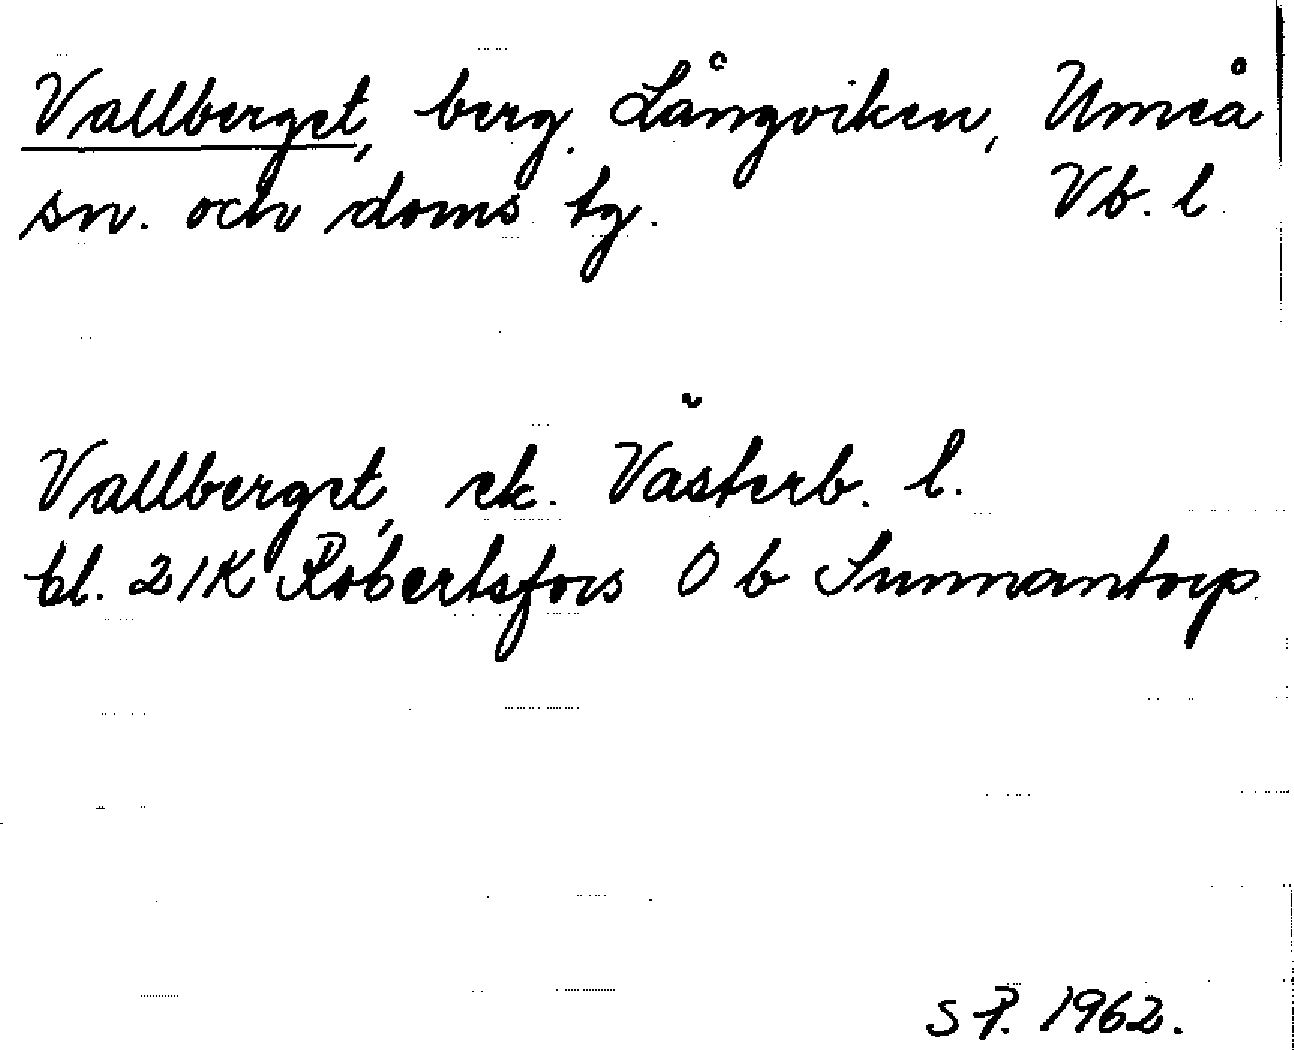 Vallberget, berg. Långviken, Umeå
sn. och doms tg. Vb. l.
Vallberget, ek. Västerb. l.
bl. 21K Robertsfors O b Sunnantorp.
S P. 1962.